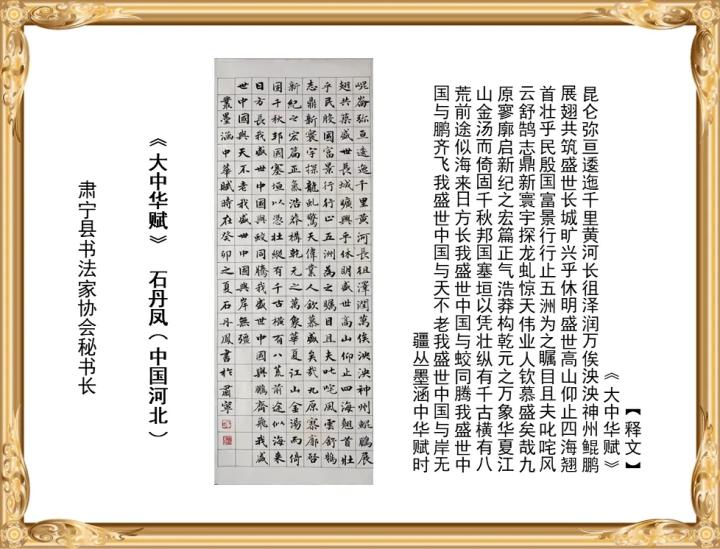 【释文】
《大中华赋》
昆仑弥亘逶迤千里黄河长徂泽润万俟泱泱神州鲲鹏
展翅共筑盛世长城旷兴乎休明盛世高山仰止四海翘
首壮乎民殷国富景行行止五洲为之瞩目且夫叱咤风
云舒鹄志鼎新寰宇探龙虬惊天伟业人钦慕盛矣哉九
原寥廓启新纪之宏篇正气浩莽构乾元之万象华夏江
山金汤而倚固千秋邦国塞垣以凭壮纵有千古横有八
荒前途似海来日方长我盛世中国与蛟同腾我盛世中
国与鹏齐飞我盛世中国与天不老我盛世中国与岸无
疆丛墨涵中华赋时
崐崙弥亘逶迤千里黄河長徂澤潤萬俟泱泱神州鯤鵬展
翅共築盛世長城曠興乎休明盛世高山仰止四海翹首壮
乎民殷國富景行行止五洲為之矚目且夫叱咤風雲舒鵠
志鼎新寰宇探龍虬驚天偉業人欽慕盛矣哉九原寥廓啓
新紀之宏篇正氣浩莽構乾元之萬象華夏江山金湯而倚
固千秋邦國塞垣以憑壮縱有千古横有八荒前途似海来
日方長我盛世中國與蛟同騰我盛世中國與鵬齊飛我盛
世中國與天不老我盛世中國與岸無疆
叢墨涵中華賦時在癸卯之夏石丹鳳書於肅寧
《大中华赋》 石丹凤（中国河北）
肃宁县书法家协会秘书长